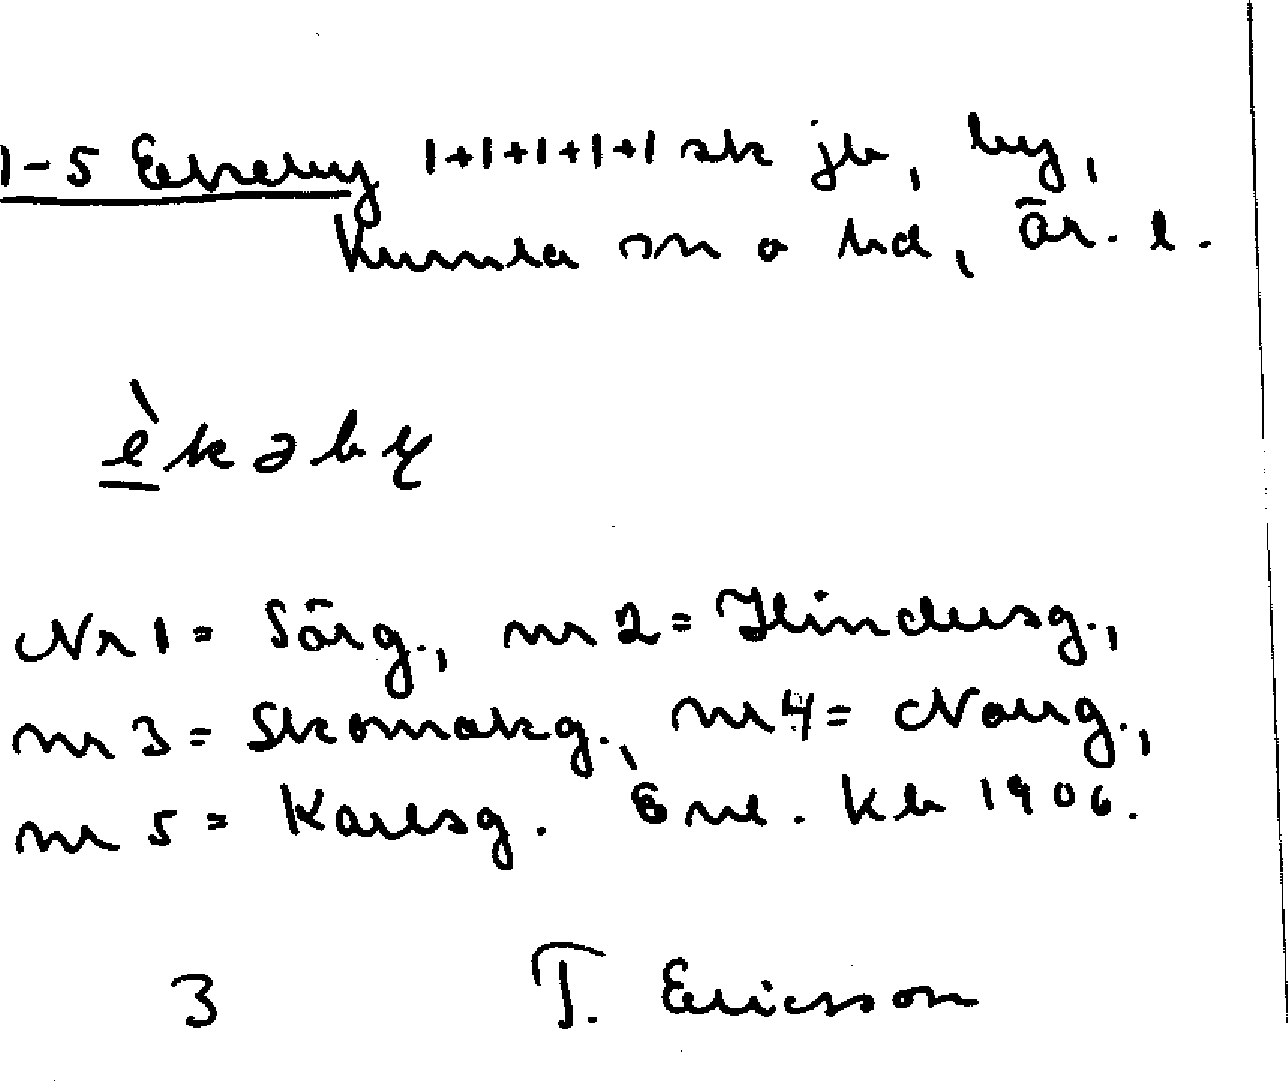 1-5 Ekeby 1+1+1+1+1 sk jb, by,
Kumla sn o hd, Ör. l.
è̱kəby
Nr 1 = Sörg., nr 2 = Hindersg.,
nr 3 = Skomakg., nr 4 = Norrg.,
nr 5 = Karlsg. Enl. kb 1906.
3 T. Ericsson